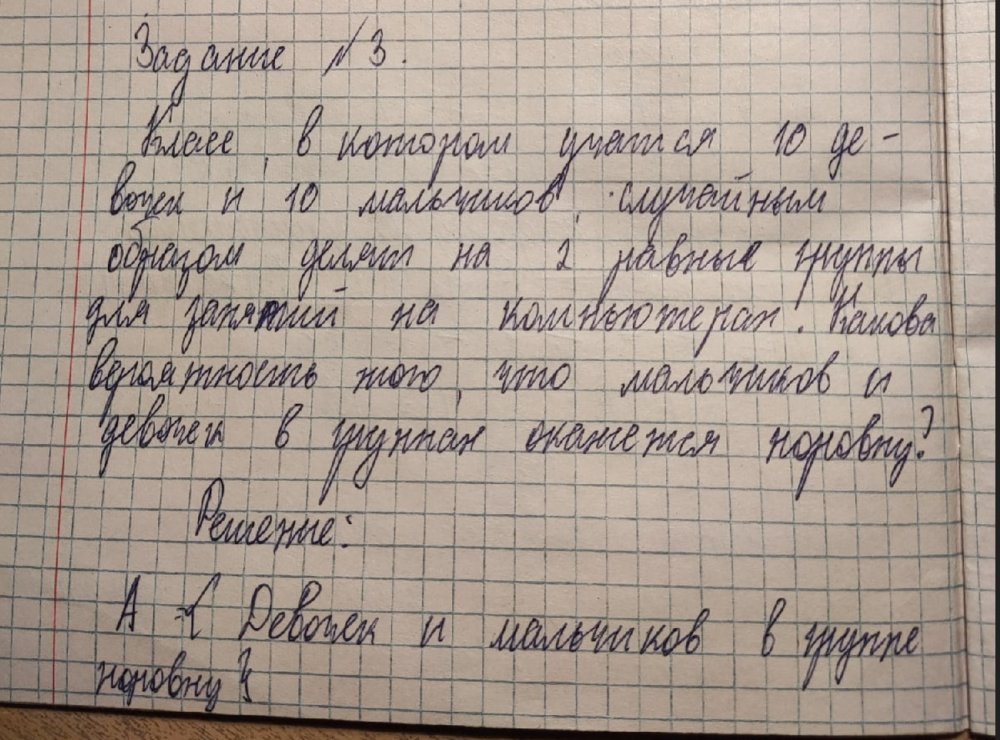 Задание №3.
Класс, в котором учатся 10 де-
вочек и 10 мальчиков, случайным
образом делят на 2 равные группы
для занятий на компьютерах. Какова
вероятность того, что мальчиков и
девочек в группах окажется поровну?
Решение:
А = { Девочек и мальчиков в группе
поровну }